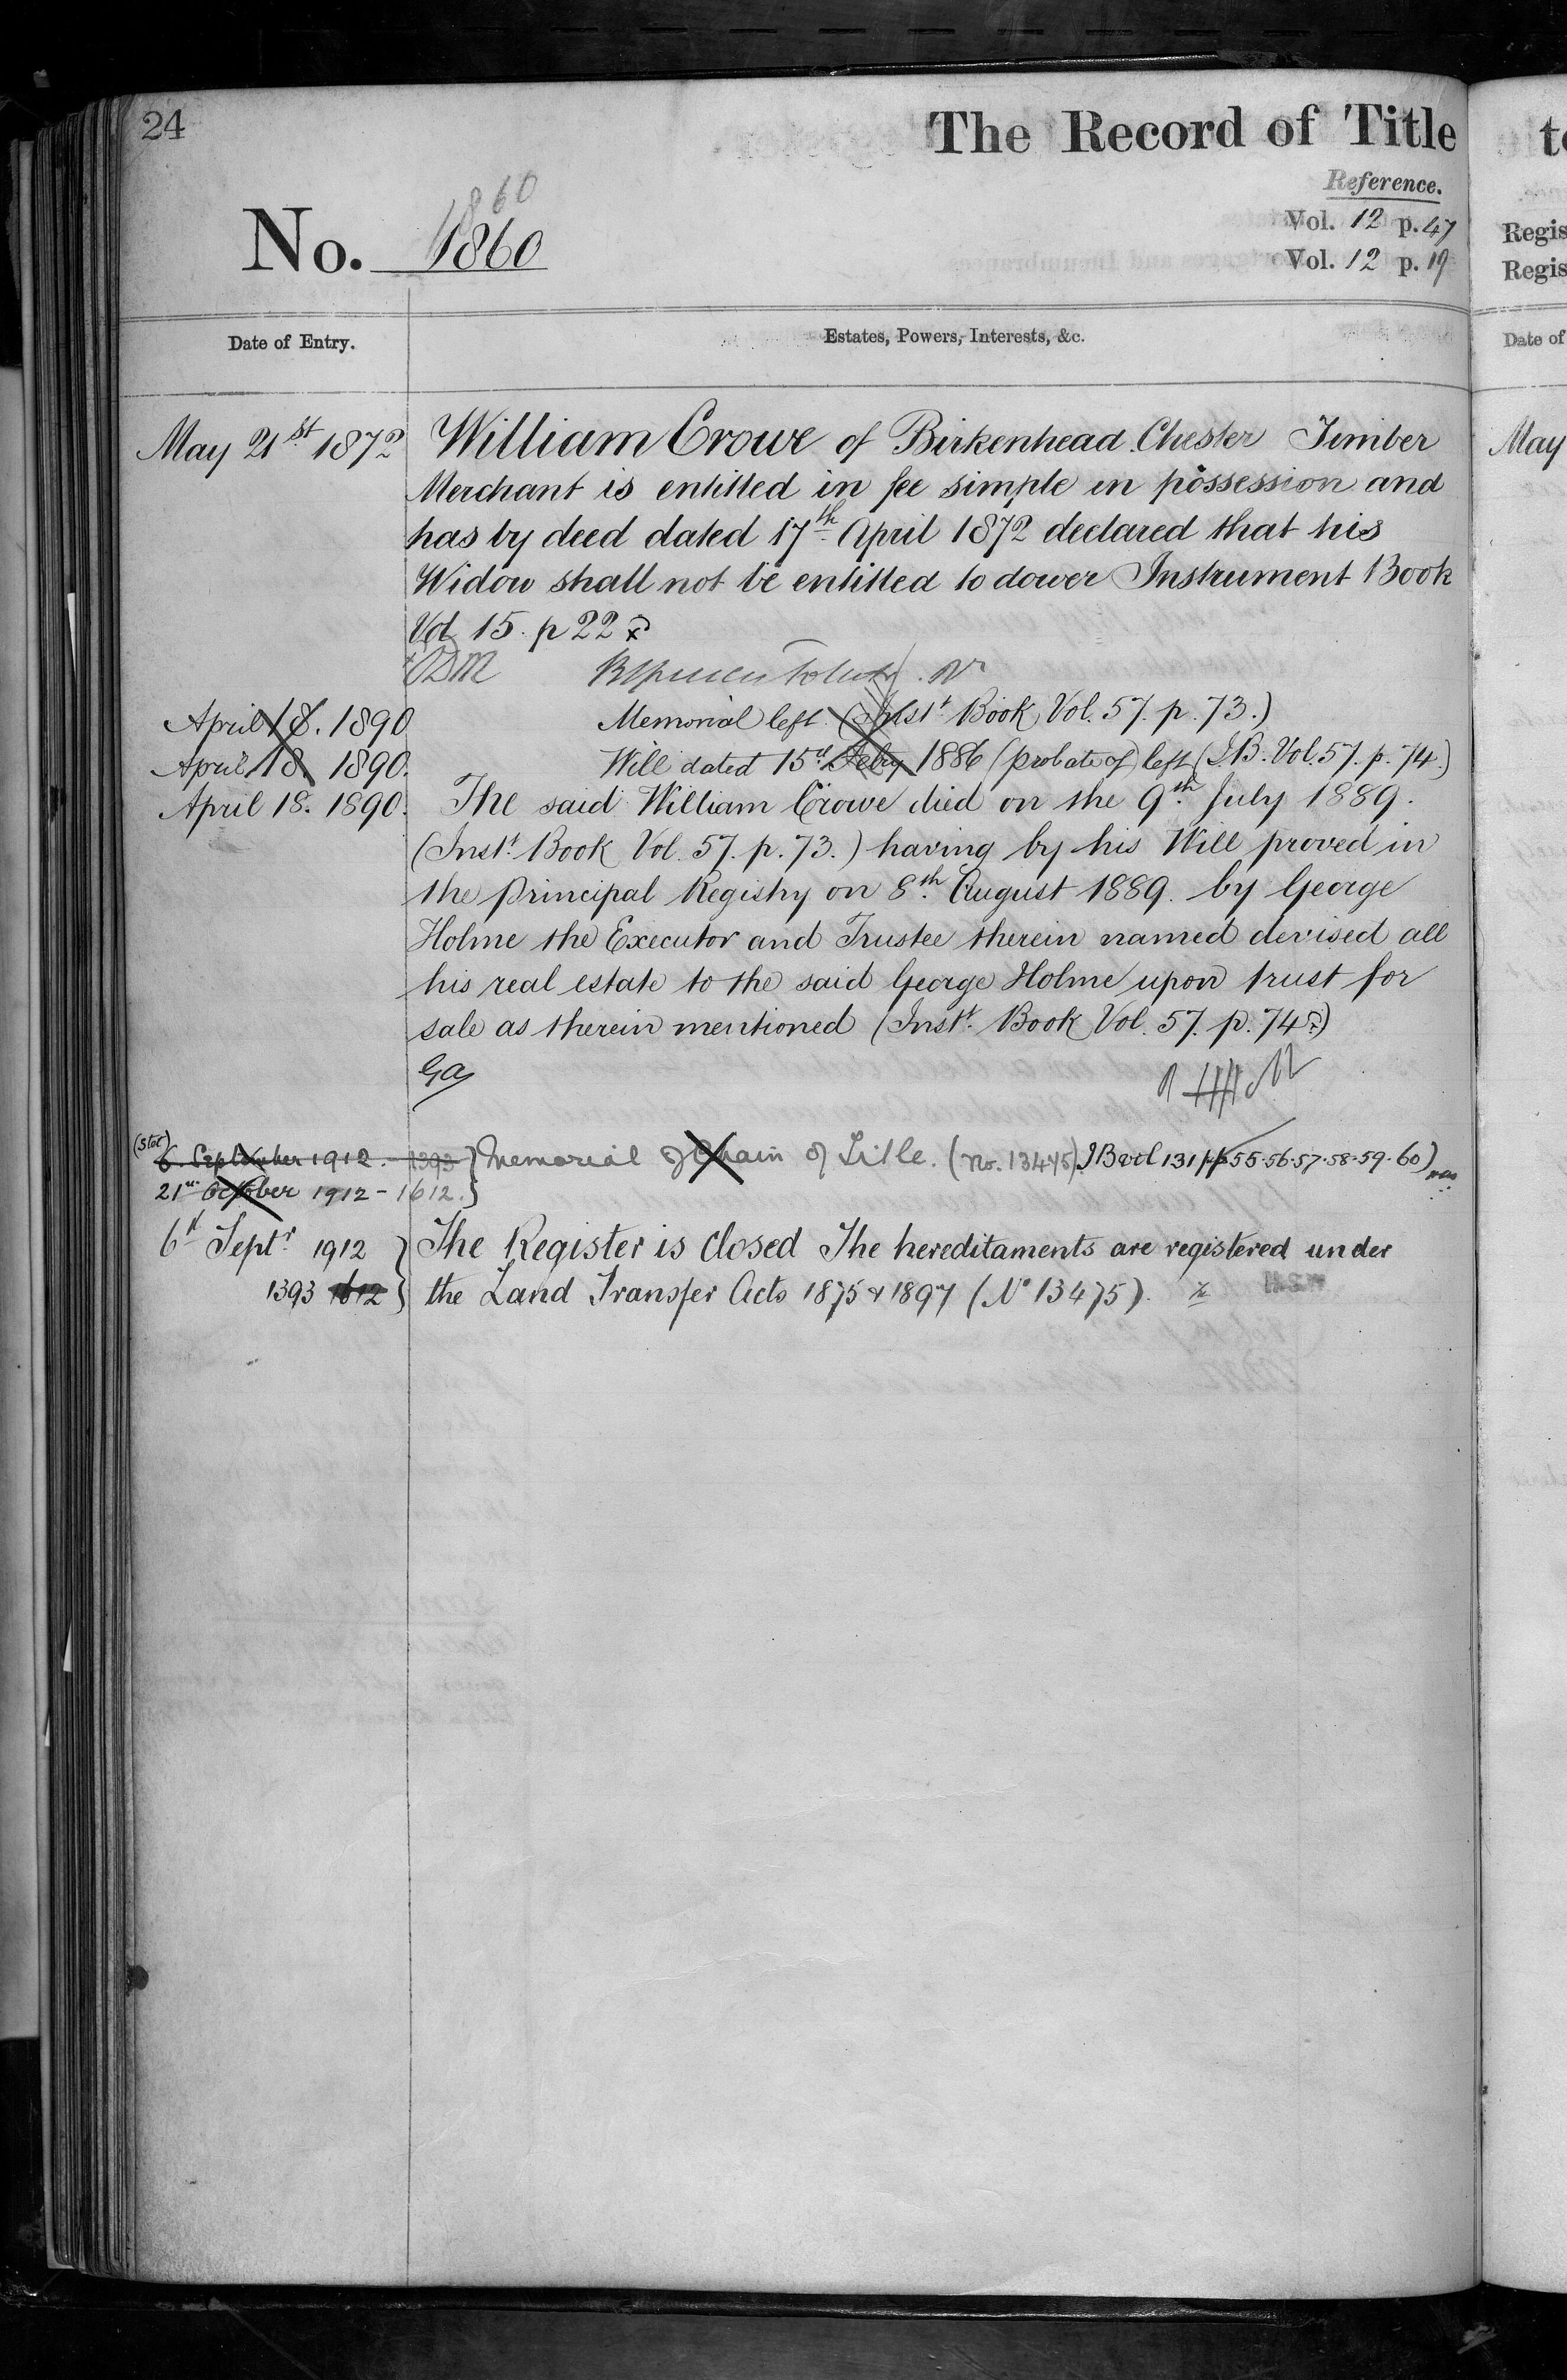 24
The Record of Title
Reference.
No. 1860
1860
Vol. 12 p. 47
Vol. 12 p. 19
Regis
Regis
Date of Entry.
Estates, Powers, Interests, &c.
Date of
May 21st 1872 William Crowe of Birkenhead Chester Timber
May
Merchant is entitled in fee simple in possession and
has by deed dated 17th April 1872 declared that his
Widow shall not be entitled to dower Instrument Book
Vol 15. p 22
April 18. 1890 Memorial left (Inst. Book Vol. 57. p. 73.)
April 18. 1890. Will dated 15th Feby 1886 (probate of) left (I.B. Vol. 57. p. 74.)
April 18. 1890. The said William Crowe died on the 9th July 1889.
(Inst. Book Vol. 57. p. 73.) having by his Will proved in
the Principal Registry on 8th August 1889. by George
Holme the Executor and Trustee therein named devised all
his real estate to the said George Holme upon trust for
sale as therein mentioned (Inst. Book Vol. 57. p. 74)
(Stat)
6. September 1912. - 1393 } Memorial of Chain of Title. (No. 13475) I B vol 131 pp 55.56.57.58.59.60)
21st October 1912 - 1612. }
6th Septr 1912 } The Register is closed The hereditaments are registered under
1393 1612 } the Land Transfer Acts 1875 & 1897 (No 13475).